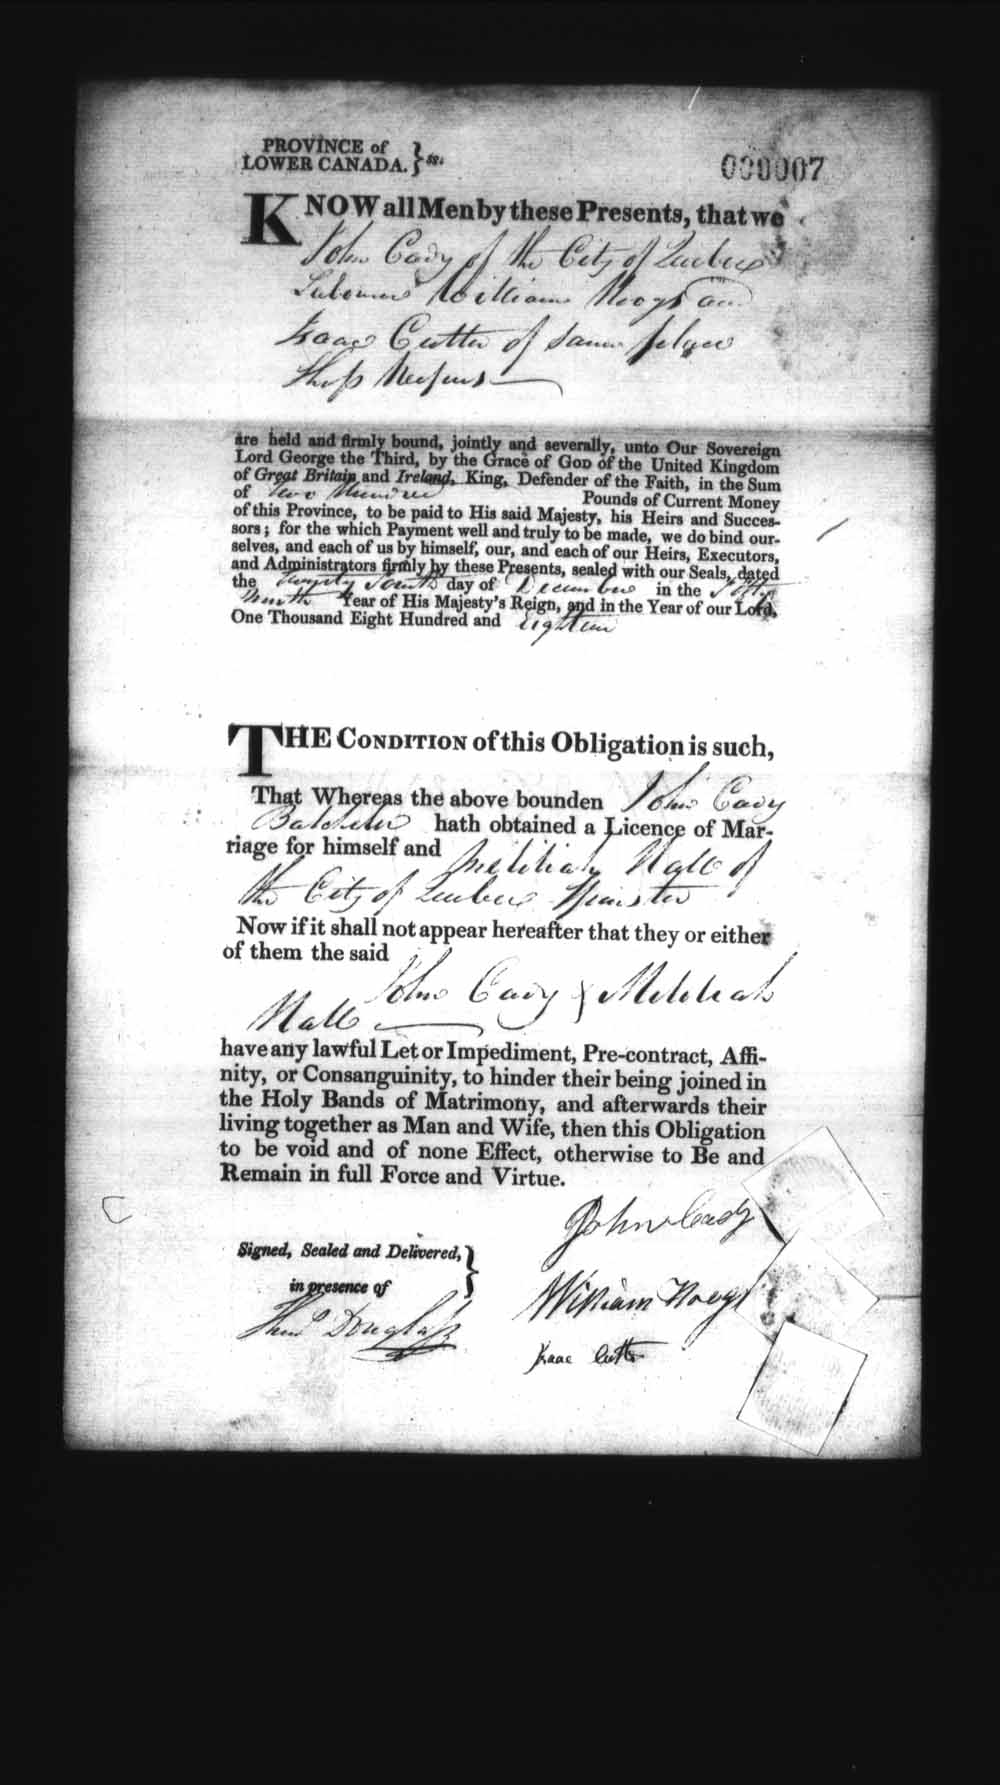 PROVINCE of
LOWER CANADA. } ss.
000007
KNOW all Men by these Presents, that we
John Cady of the City of Quebec
Labourer William
Isaac Cutter of same place
are held and firmly bound, jointly and severally, unto Our Sovereign
Lord George the Third, by the Grace of GOD of the United Kingdom
of Great Britain and Ireland, King, Defender of the Faith, in the Sum
of Two Hundred Pounds of Current Money
of this Province, to be paid to His said Majesty, his Heirs and Succes-
sors; for the which Payment well and truly to be made, we do bind our-
selves, and each of us by himself, our, and each of our Heirs, Executors,
and Administrators firmly by these Presents, sealed with our Seals, dated
the day of December in the Fifty
Ninth Year of His Majesty's Reign, and in the Year of our Lord,
One Thousand Eight Hundred and Eighteen
THE CONDITION of this Obligation is such,
That Whereas the above bounden John Cady
Batchelor hath obtained a Licence of Mar-
riage for himself and Hall of
the City of Quebec Spinster
Now if it shall not appear hereafter that they or either
of them the said
John Cady &
Hall
have any lawful Let or Impediment, Pre-contract, Affi-
nity, or Consanguinity, to hinder their being joined in
the Holy Bands of Matrimony, and afterwards their
living together as Man and Wife, then this Obligation
to be void and of none Effect, otherwise to Be and
Remain in full Force and Virtue.
John Cady
Signed, Sealed and Delivered, }
in presence of
William
Thos Douglass
Isaac Cutter